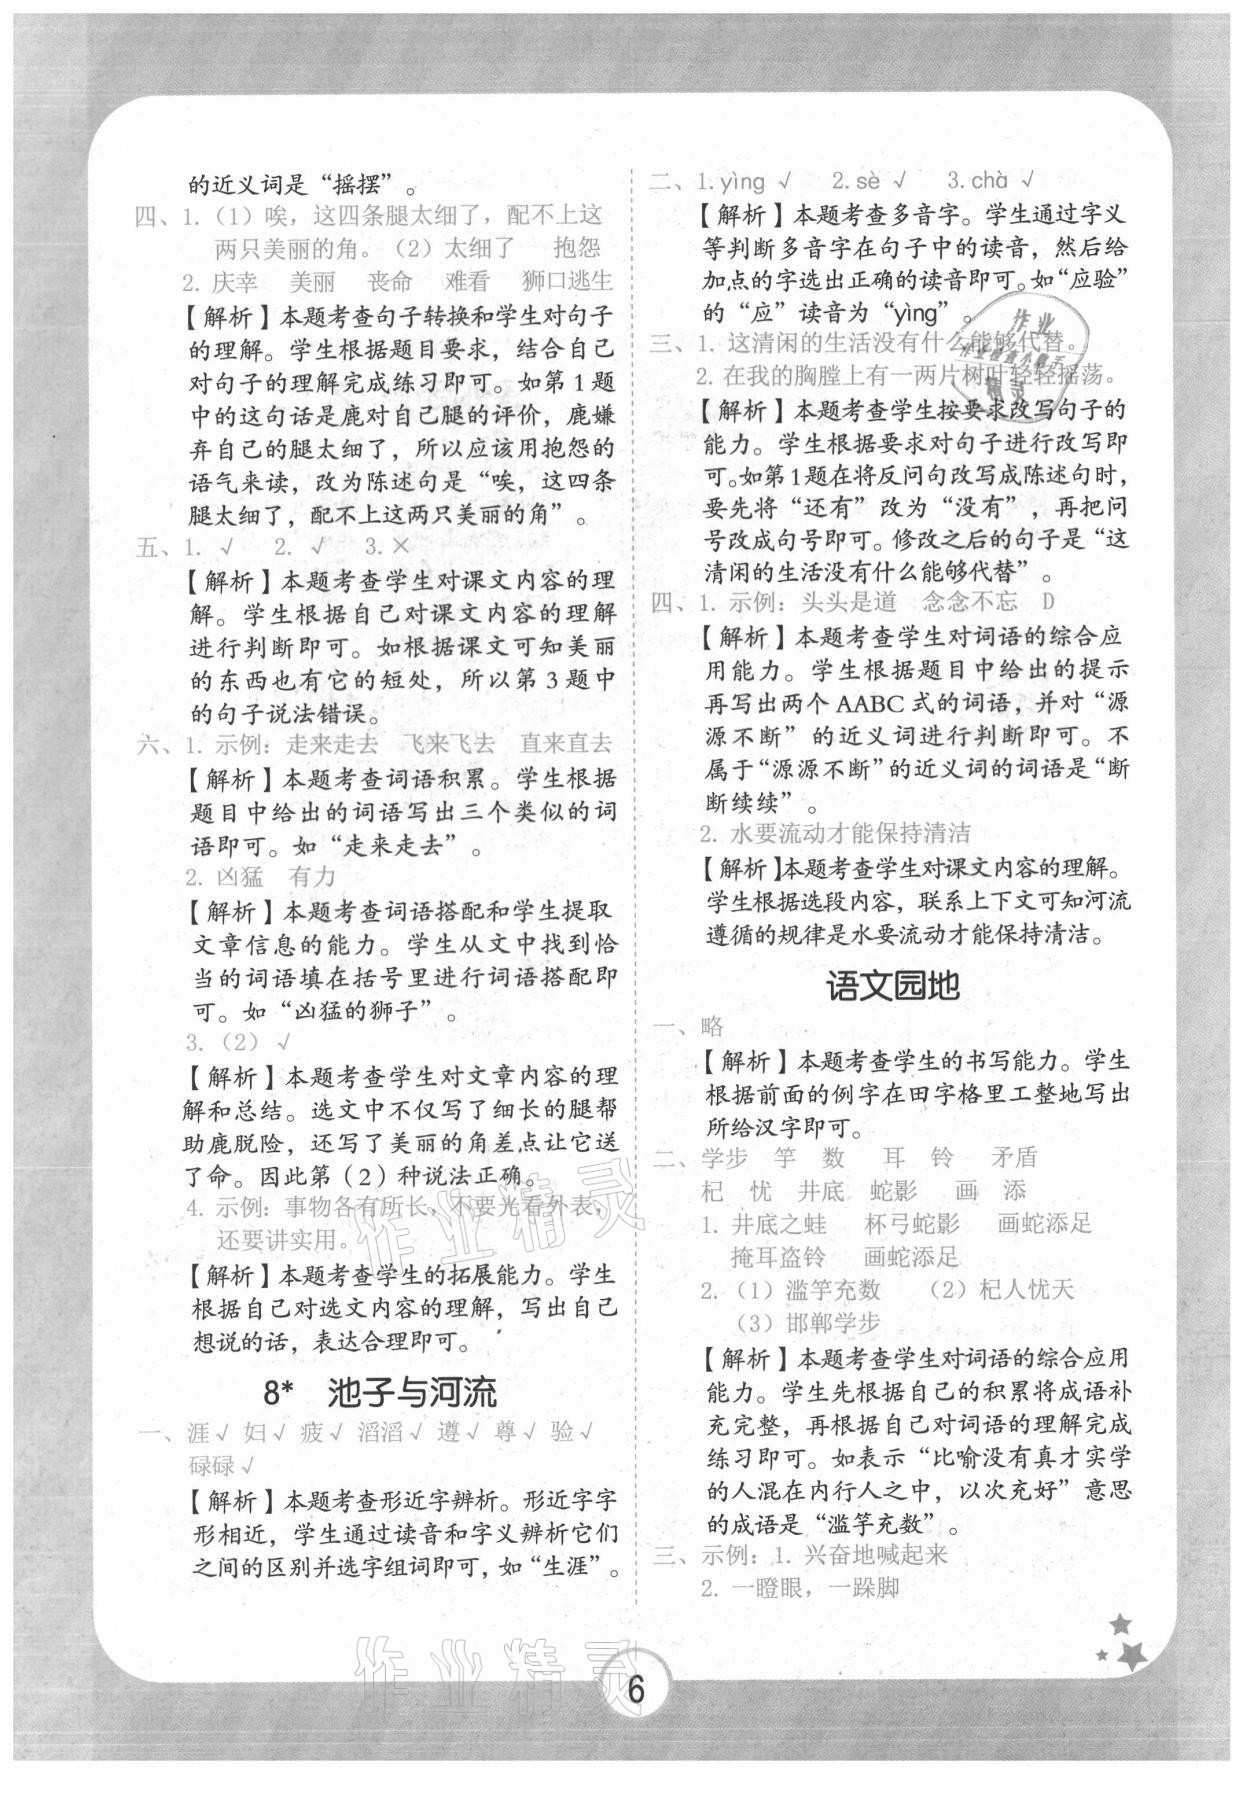 的近义词是“摇摆”。
四、1.（1）唉，这四条腿太细了，配不上这
两只美丽的角。（2）太细了　抱怨
2. 庆幸　美丽　丧命　难看　狮口逃生
【解析】本题考查句子转换和学生对句子
的理解。学生根据题目要求，结合自己
对句子的理解完成练习即可。如第1题
中的这句话是鹿对自己腿的评价，鹿嫌
弃自己的腿太细了，所以应该用抱怨的
语气来读，改为陈述句是“唉，这四条
腿太细了，配不上这两只美丽的角”。
五、1. √　2. √　3.×
【解析】本题考查学生对课文内容的理
解。学生根据自己对课文内容的理解
进行判断即可。如根据课文可知美丽
的东西也有它的短处，所以第3题中
的句子说法错误。
六、1. 示例：走来走去　飞来飞去　直来直去
【解析】本题考查词语积累。学生根据
题目中给出的词语写出三个类似的词
语即可。如“走来走去”。
2. 凶猛　有力
【解析】本题考查词语搭配和学生提取
文章信息的能力。学生从文中找到恰
当的词语填在括号里进行词语搭配即
可。如“凶猛的狮子”。
3.（2）√
【解析】本题考查学生对文章内容的理
解和总结。选文中不仅写了细长的腿帮
助鹿脱险，还写了美丽的角差点让它送
了命。因此第（2）种说法正确。
4. 示例：事物各有所长，不要光看外表，
还要讲实用。
【解析】本题考查学生的拓展能力。学生
根据自己对选文内容的理解，写出自己
想说的话，表达合理即可。
8*　池子与河流
一、涯√ 妇√ 疲√ 滔滔√ 遵√ 尊√ 验√
碌碌√
【解析】本题考查形近字辨析。形近字字
形相近，学生通过读音和字义辨析它们
之间的区别并选字组词即可，如“生涯”。
二、1.yìng √　2.sè √　3.chà √
【解析】本题考查多音字。学生通过字义
等判断多音字在句子中的读音，然后给
加点的字选出正确的读音即可。如“应验”
的“应”读音为“yìng”。
三、1. 这清闲的生活没有什么能够代替。
2. 在我的胸膛上有一两片树叶轻轻摇荡。
【解析】本题考查学生按要求改写句子的
能力。学生根据要求对句子进行改写即
可。如第1题在将反问句改写成陈述句时，
要先将“还有”改为“没有”，再把问
号改成句号即可。修改之后的句子是“这
清闲的生活没有什么能够代替”。
四、1. 示例：头头是道　念念不忘　D
【解析】本题考查学生对词语的综合应
用能力。学生根据题目中给出的提示
再写出两个AABC式的词语，并对“源
源不断”的近义词进行判断即可。不
属于“源源不断”的近义词的词语是“断
断续续”。
2. 水要流动才能保持清洁
【解析】本题考查学生对课文内容的理解。
学生根据选段内容，联系上下文可知河流
遵循的规律是水要流动才能保持清洁。
语文园地
一、略
【解析】本题考查学生的书写能力。学生
根据前面的例字在田字格里工整地写出
所给汉字即可。
二、学步　竽　数　耳　铃　矛盾
杞　忧　井底　蛇影　画　添
1. 井底之蛙　杯弓蛇影　画蛇添足
掩耳盗铃　画蛇添足
2.（1）滥竽充数　（2）杞人忧天
（3）邯郸学步
【解析】本题考查学生对词语的综合应用
能力。学生先根据自己的积累将成语补
充完整，再根据自己对词语的理解完成
练习即可。如表示“比喻没有真才实学
的人混在内行人之中，以次充好”意思
的成语是“滥竽充数”。
三、示例：1. 兴奋地喊起来
2. 一瞪眼，一跺脚
6
作业精灵
作业精灵
作业
作业检查小帮手
精灵